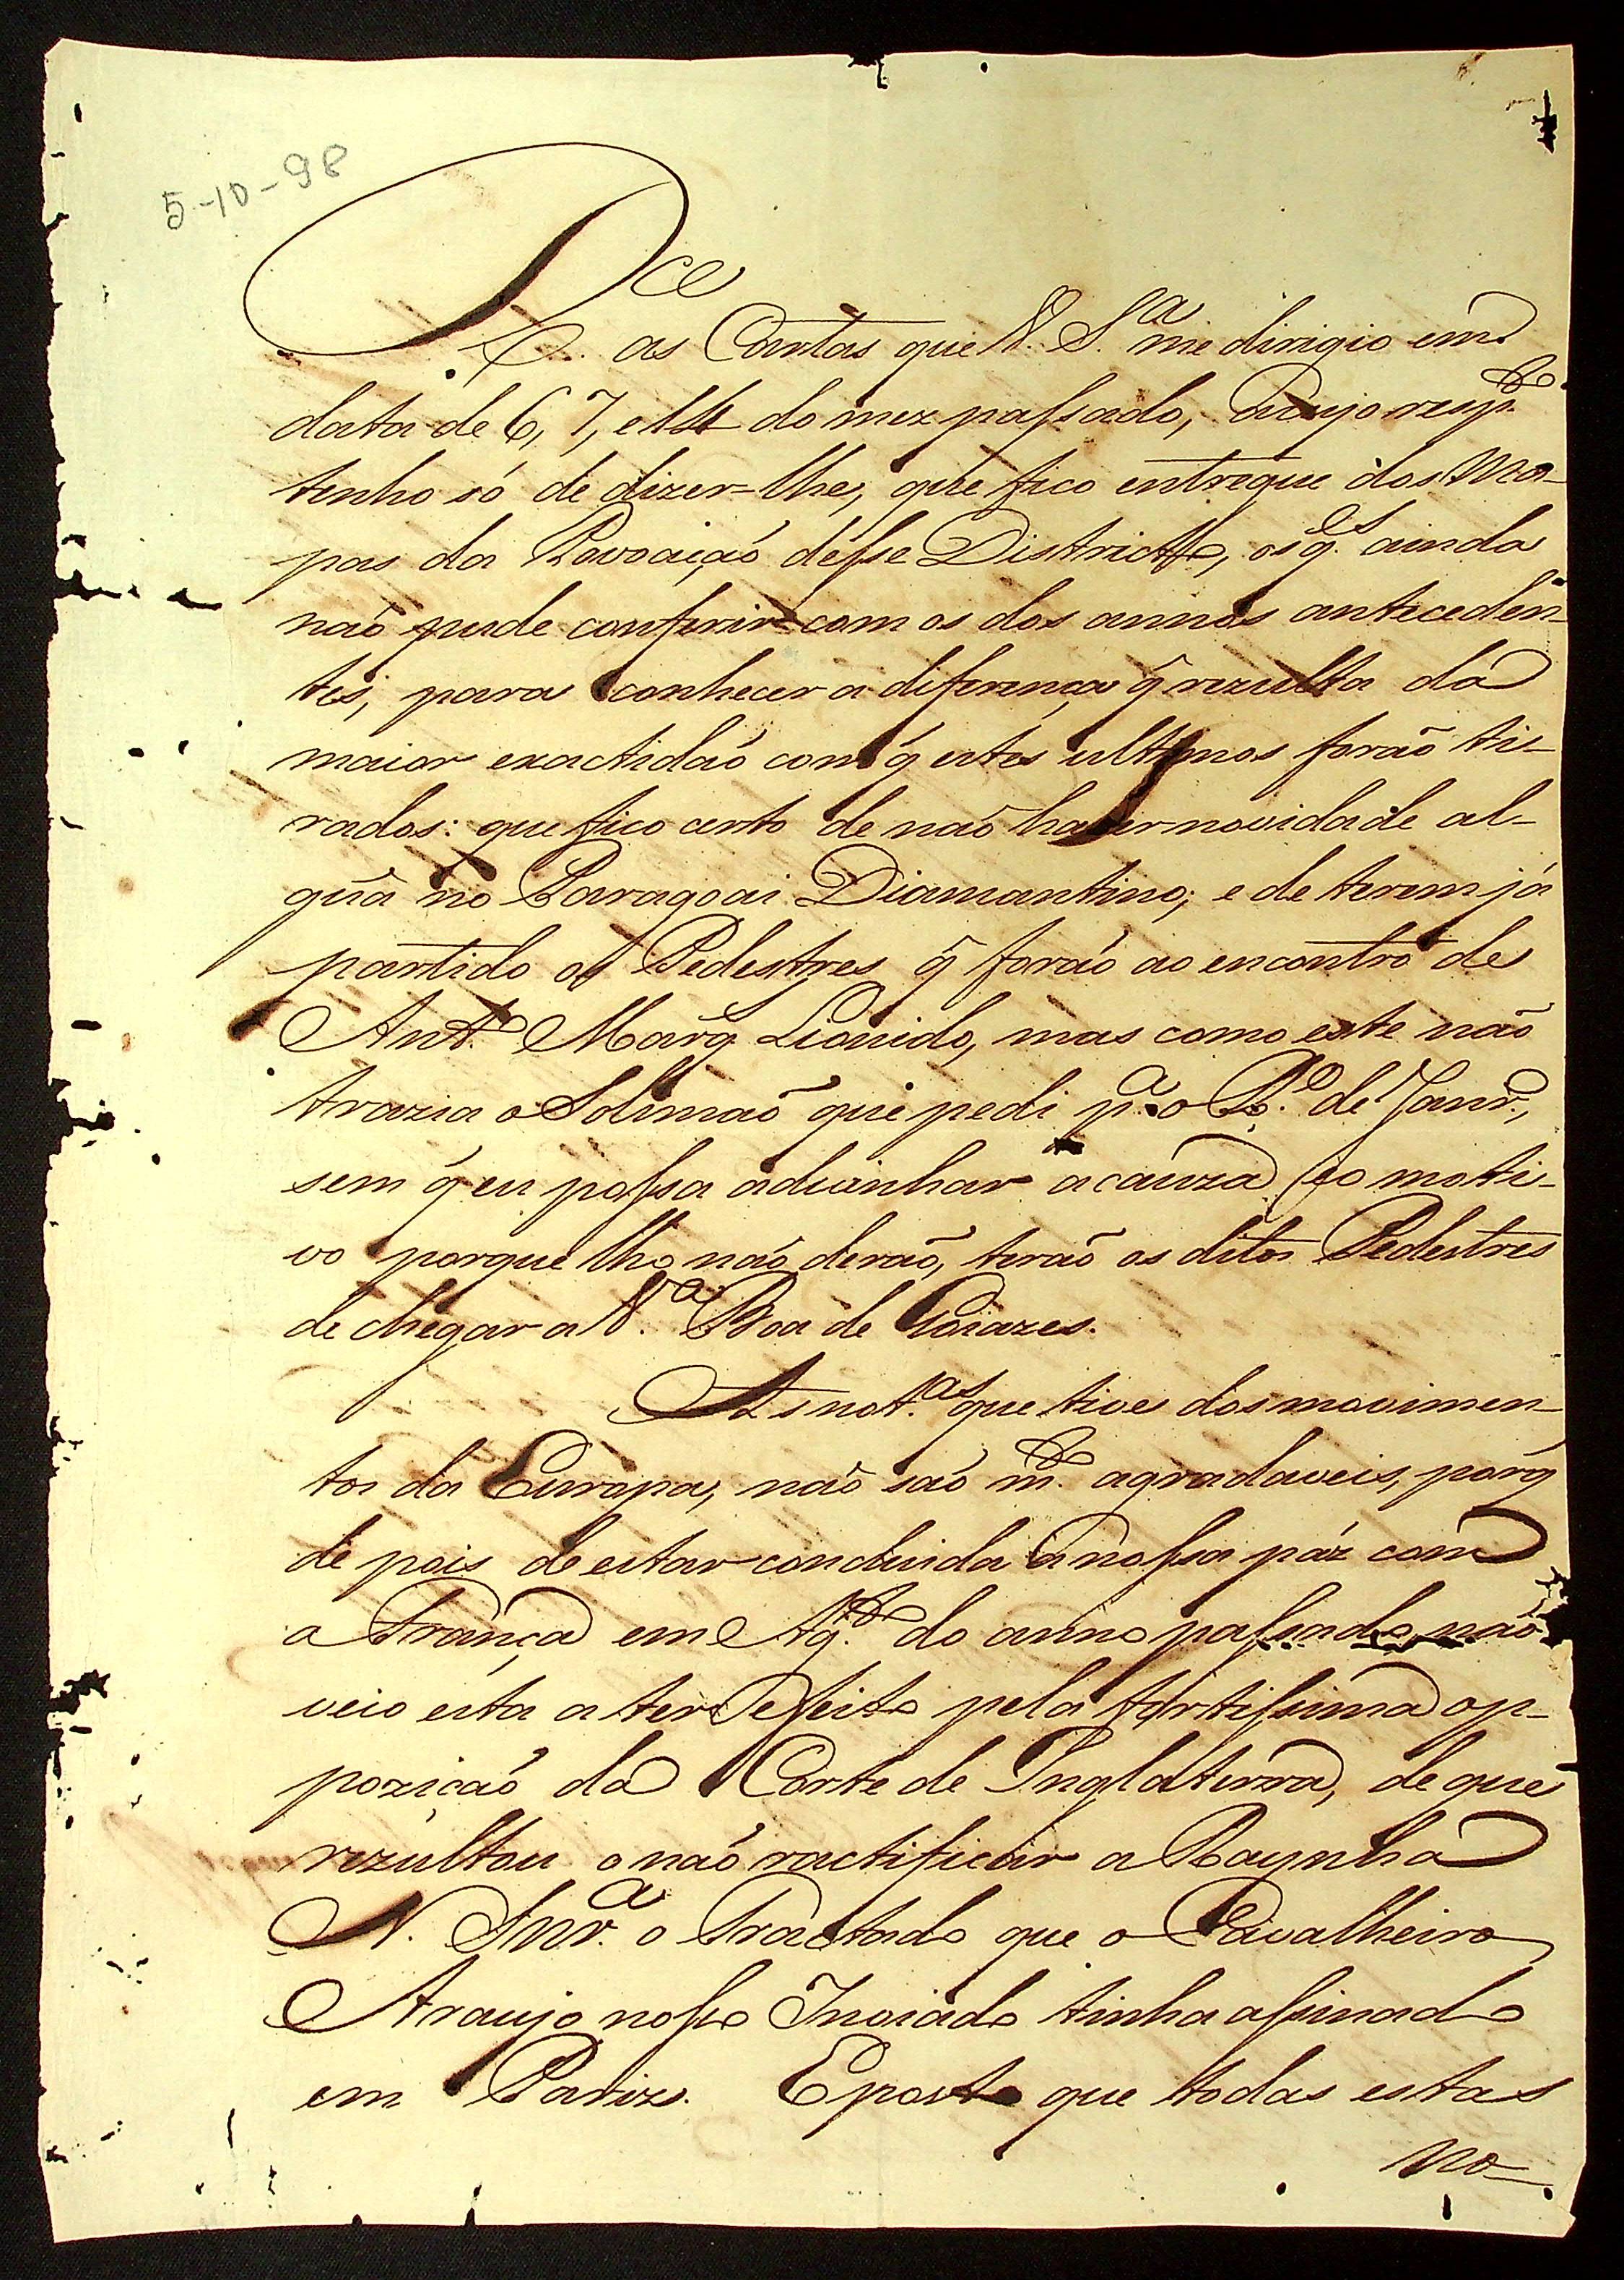 5-10-98
R.ce as Cartas que V. S.ª me dirigio em
data de 6, 7, e 14 do mez passado, a cujo resp.to
tenho só de dizer-lhe, que fico entregue dos Ma-
pas da Povoação desse Districto, os q.es ainda
não pude conferir com os dos annos anteceden-
tes, para conhecer a diferença q̃ rezulta da
maior exactidão com q̃ estes ultimos forão ti-
rados: que fico certo de não haver novidade al-
guã no Paragoai Diamantino; e de terem já
partido os Pedestres q̃ forão ao encontro de
Ant.º Marq̃ Lionido, mas como este não
trazia o Solimaõ que pedi p.ª o R.º de Janr.º,
sem q̃ eu possa advinhar a cauza, e o moti-
vo porque lho não derão, terão os ditos Pedestres
de chegar a V.ª Boa de Goiazes.
As not.as que tive dos movimen-
tos da Europa, não são m.to agradaveis, porq̃
de pois de estar concluida a nossa páz com
a França em Ag.to do anno passado, não
veio esta a ter efeito pela fortissima op-
pozição da Corte de Inglaterra, de que
rezultou o não ractificar a Raynha
N. Snr.ª o Tractado que o Cavalheiro
Araujo nosso Inviado tinha assinado
em Pariz. E posto que todas estas
no-